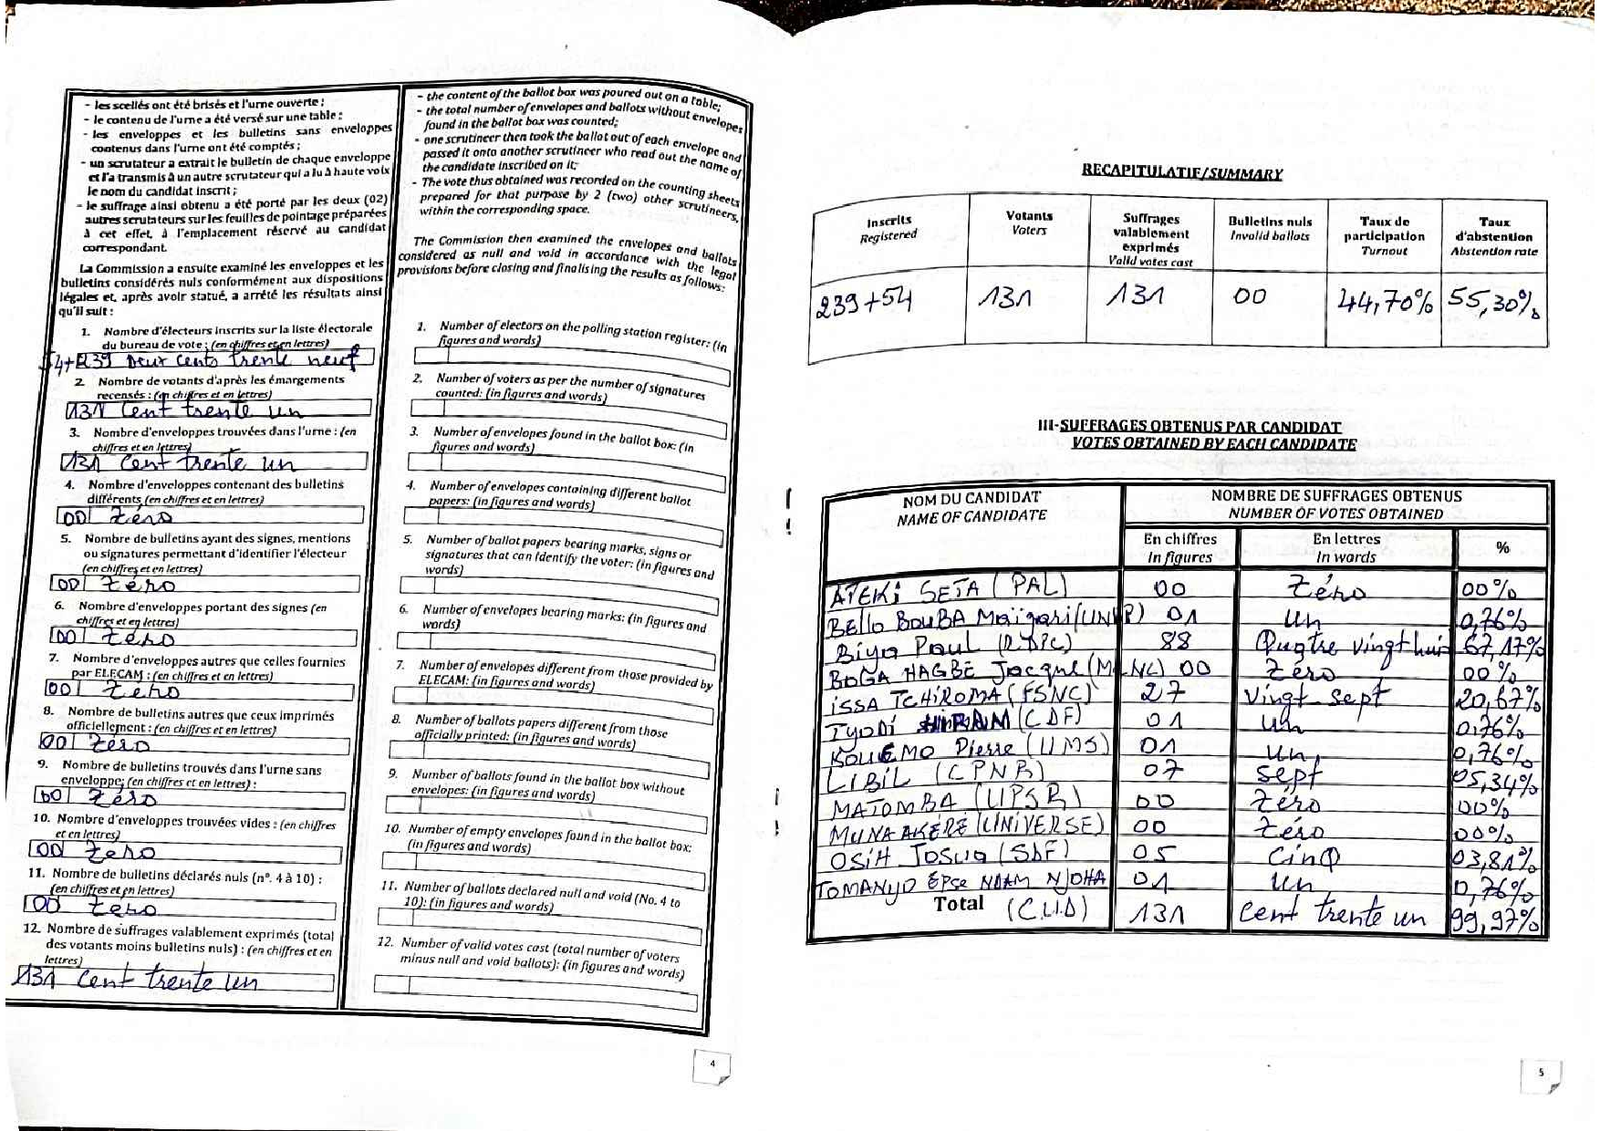 - les scellés ont été brisés et l'urne ouverte ;
- le contenu de l'urne a été versé sur une table ;
- les enveloppes et les bulletins sans enveloppes
contenus dans l'urne ont été comptés ;
- un scrutateur a extrait le bulletin de chaque enveloppe
et l'a transmis à un autre scrutateur qui a lu à haute voix
le nom du candidat inscrit ;
- le suffrage ainsi obtenu a été porté par les deux (02)
autres scrutateurs sur les feuilles de pointage préparées
à cet effet, à l'emplacement réservé au candidat
correspondant.
La Commission a ensuite examiné les enveloppes et les
bulletins considérés nuls conformément aux dispositions
légales et, après avoir statué, a arrêté les résultats ainsi
qu'il suit :
1. Nombre d'électeurs inscrits sur la liste électorale
du bureau de vote : (en chiffres et en lettres)
54+239 Deux cents trente neuf
2. Nombre de votants d'après les émargements
recensés : (en chiffres et en lettres)
131 Cent trente un
3. Nombre d'enveloppes trouvées dans l'urne : (en
chiffres et en lettres)
131 Cent trente un
4. Nombre d'enveloppes contenant des bulletins
différents (en chiffres et en lettres)
00 Zéro
5. Nombre de bulletins ayant des signes, mentions
ou signatures permettant d'identifier l'électeur
(en chiffres et en lettres)
00 Zéro
6. Nombre d'enveloppes portant des signes (en
chiffres et en lettres)
00 Zéro
7. Nombre d'enveloppes autres que celles fournies
par ELECAM : (en chiffres et en lettres)
00 Zéro
8. Nombre de bulletins autres que ceux imprimés
officiellement : (en chiffres et en lettres)
00 Zéro
9. Nombre de bulletins trouvés dans l'urne sans
enveloppe; (en chiffres et en lettres) :
00 Zéro
10. Nombre d'enveloppes trouvées vides : (en chiffres
et en lettres)
00 Zéro
11. Nombre de bulletins déclarés nuls (n°. 4 à 10) :
(en chiffres et en lettres)
00 Zéro
12. Nombre de suffrages valablement exprimés (total
des votants moins bulletins nuls) : (en chiffres et en
lettres)
131 Cent trente un
- the content of the ballot box was poured out on a table;
- the total number of envelopes and ballots without envelopes
found in the ballot box was counted;
- one scrutineer then took the ballot out of each envelope and
passed it onto another scrutineer who read out the name of
the candidate inscribed on it;
- The vote thus obtained was recorded on the counting sheets
prepared for that purpose by 2 (two) other scrutineers,
within the corresponding space.
The Commission then examined the envelopes and ballots
considered as null and void in accordance with the legal
provisions before closing and finalising the results as follows:
1. Number of electors on the polling station register: (in
figures and words)
2. Number of voters as per the number of signatures
counted: (in figures and words)
3. Number of envelopes found in the ballot box: (in
figures and words)
4. Number of envelopes containing different ballot
papers: (in figures and words)
5. Number of ballot papers bearing marks, signs or
signatures that can identify the voter: (in figures and
words)
6. Number of envelopes bearing marks: (in figures and
words)
7. Number of envelopes different from those provided by
ELECAM: (in figures and words)
8. Number of ballots papers different from those
officially printed: (in figures and words)
9. Number of ballots found in the ballot box without
envelopes: (in figures and words)
10. Number of empty envelopes found in the ballot box:
(in figures and words)
11. Number of ballots declared null and void (No. 4 to
10): (in figures and words)
12. Number of valid votes cast (total number of voters
minus null and void ballots): (in figures and words)
4
RECAPITULATIF/SUMMARY
Inscrits Registered | Votants Voters | Suffrages valablement exprimés Valid votes cast | Bulletins nuls Invalid ballots | Taux de participation Turnout | Taux d'abstention Abstention rate
239+54 131 131 00 44,70% 55,30%
III-SUFFRAGES OBTENUS PAR CANDIDAT
VOTES OBTAINED BY EACH CANDIDATE
NOM DU CANDIDAT NOMBRE DE SUFFRAGES OBTENUS
NAME OF CANDIDATE NUMBER OF VOTES OBTAINED
En chiffres En lettres %
In figures In words
ATEKI SETA (PAL) 00 Zéro 00%
BELLO BOUBA Maïgari (UNDP) 01 Un 0,76%
Biya Paul (RDPC) 88 Quatre vingt huit 67,17%
BOGA HAGBE Jacque (MCNC) 00 Zéro 00%
ISSA TCHIROMA (FSNC) 27 Vingt sept 20,67%
IYODI HIRAM (CDF) 01 Un 0,76%
KOUEMO Pierre (UMS) 01 Un, 0,76%
LIBIL (CPNR) 07 Sept 05,34%
MATOMBA (UPSR) 00 Zéro 00%
MUNA AKERE (UNIVERSE) 00 Zéro 00%
OSIH JOSUA (SDF) 05 CinQ 03,81%
TOMANYO Epse NDAM NJOHA 01 Un 0,76%
Total (CUD) 131 Cent trente un 99,97%
5